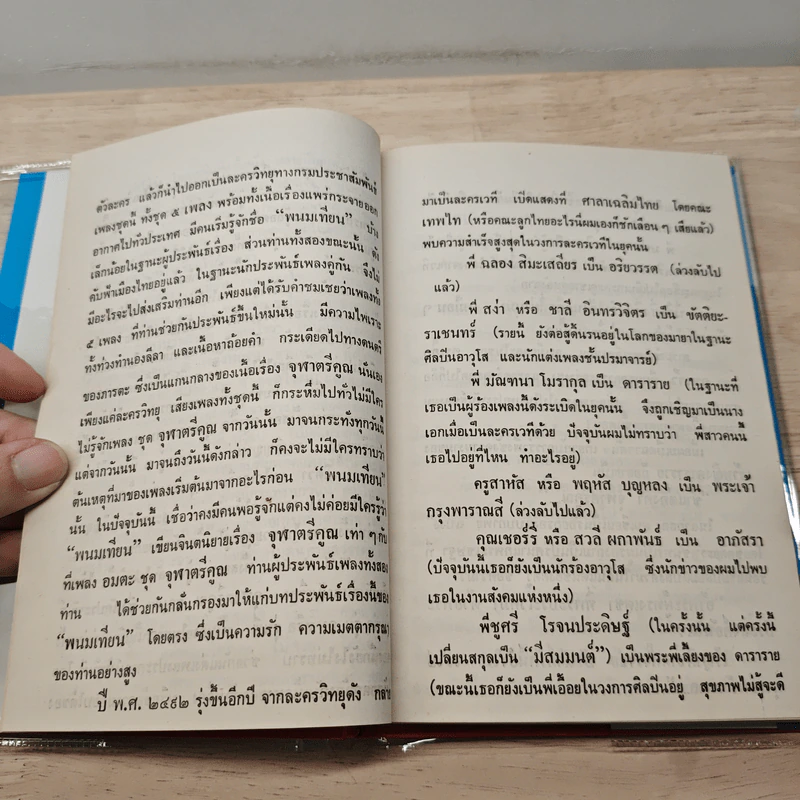 ตัวละคร แล้วก็นำไปออกเป็นละครวิทยุทางกรมประชาสัมพันธ์
เพลงชุดนี้ ทั้งชุด ๕ เพลง พร้อมทั้งเนื้อเรื่องแพร่กระจายออก
อากาศไปทั่วประเทศ มีคนเริ่มรู้จักชื่อ “พนมเทียน” บ้าง
เล็กน้อยในฐานะผู้ประพันธ์เรื่อง ส่วนท่านทั้งสองขณะนั้น ดัง
คับฟ้าเมืองไทยอยู่แล้ว ในฐานะนักประพันธ์เพลงคู่กัน จึงไม่
มีอะไรจะไปส่งเสริมท่านอีก เพียงแต่ได้รับคำชมเชยว่าเพลงทั้ง
๕ เพลง ที่ท่านช่วยกันประพันธ์ขึ้นใหม่นั้น มีความไพเราะ
ทั้งท่วงทำนองลีลา และเนื้อหาถ้อยคำ กระเดียดไปทางดนตรี
ของภารตะ ซึ่งเป็นแกนกลางของเนื้อเรื่อง จุฬาตรีคูณ นั่นเอง
เพียงแค่ละครวิทยุ เสียงเพลงทั้งชุดนี้ ก็กระหึ่มไปทั่วไม่มีใคร
ไม่รู้จักเพลง ชุด จุฬาตรีคูณ จากวันนั้น มาจนกระทั่งทุกวันนี้
แต่จากวันนั้น มาจนถึงวันนี้ดังกล่าว ก็คงจะไม่มีใครทราบว่า
ต้นเหตุที่มาของเพลงเริ่มต้นมาจากอะไรก่อน “พนมเทียน”
นั้น ในปัจจุบันนี้ เชื่อว่าคงมีคนพอรู้จักแต่คงไม่ค่อยมีใครรู้ว่า
“พนมเทียน” เขียนจินตนิยายเรื่อง จุฬาตรีคูณ เท่า ๆ กับ
ที่เพลง อมตะ ชุด จุฬาตรีคูณ ท่านผู้ประพันธ์เพลงทั้งสอง
ท่าน ได้ช่วยกันกลั่นกรองมาให้แก่บทประพันธ์เรื่องนี้ของ
“พนมเทียน” โดยตรง ซึ่งเป็นความรัก ความเมตตากรุณา
ของท่านอย่างสูง
ปี พ.ศ. ๒๔๙๒ รุ่งขึ้นอีกปี จากละครวิทยุดัง กลาย
มาเป็นละครเวที เปิดแสดงที่ ศาลาเฉลิมไทย โดยคณะ
เทพไท (หรือคณะลูกไทยอะไรนี่ผมเองก็ชักเลือน ๆ เสียแล้ว)
พบความสำเร็จสูงสุดในวงการละครเวทีในยุคนั้น
พี่ ฉลอง สิมะเสถียร เป็น อริยวรรต (ล่วงลับไป
แล้ว)
พี่ สง่า หรือ ชาลี อินทรวิจิตร เป็น ขัตติยะ-
ราเชนทร์ (รายนี้ ยังต่อสู้ดิ้นรนอยู่ในโลกของมายาในฐานะ
ศิลปินอาวุโส และนักแต่งเพลงชั้นปรมาจารย์)
พี่ มัณฑนา โมรากุล เป็น ดาราราย (ในฐานะที่
เธอเป็นผู้ร้องเพลงนี้ดังระเบิดในยุคนั้น จึงถูกเชิญมาเป็นนาง
เอกเมื่อเป็นละครเวทีด้วย ปัจจุบันผมไม่ทราบว่า พี่สาวคนนี้
เธอไปอยู่ที่ไหน ทำอะไรอยู่)
ครูสาหัส หรือ พฤหัส บุญหลง เป็น พระเจ้า
กรุงพาราณสี (ล่วงลับไปแล้ว)
คุณเชอร์รี่ หรือ สวลี ผกาพันธ์ เป็น อาภัสรา
(ปัจจุบันนี้เธอก็ยังเป็นนักร้องอาวุโส ซึ่งนักข่าวของผมไปพบ
เธอในงานสังคมแห่งหนึ่ง)
พี่ชูศรี โรจนประดิษฐ์ (ในครั้งนั้น แต่ครั้งนี้
เปลี่ยนสกุลเป็น “มีสมมนต์”) เป็นพระพี่เลี้ยงของ ดาราราย
(ขณะนี้เธอก็ยังเป็นพี่เอื้อยในวงการศิลปินอยู่ สุขภาพไม่สู้จะดี